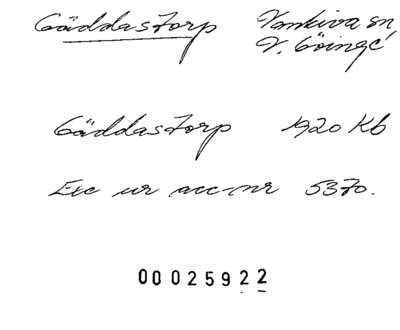 Gäddastorp Vankiva sn
V. Göinge
Gäddastorp 1920 Kb
Exc ur acc-nr 5370.
00025922